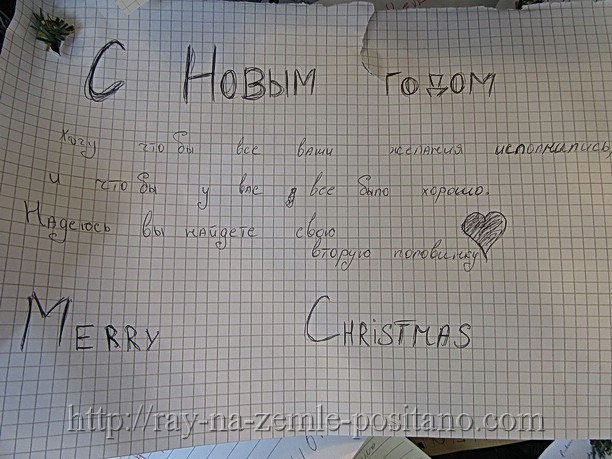 С Новым годом
Хочу что бы все ваши желания исполнились,
и что бы у вас все было хорошо.
Надеюсь вы найдете свою
вторую половинку
Merry Christmas
http://ray-na-zemle-positano.com